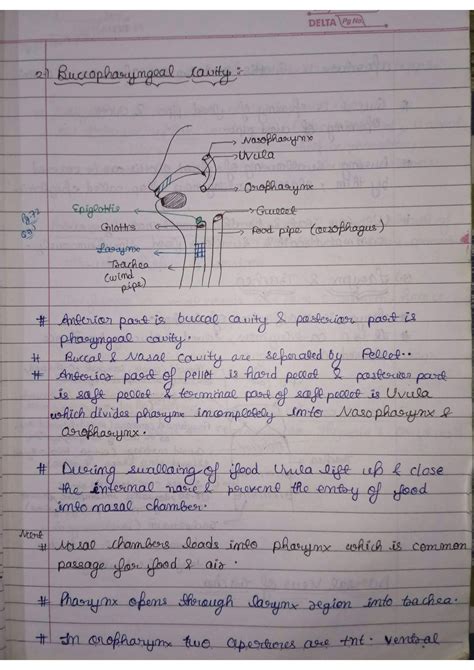 DELTA Pg No.
2) Buccopharyngeal Cavity :
Nasopharynx
Uvula
Oropharynx
Epiglottis
Gullet
Glottis
Food pipe (oesophagus)
Larynx
Trachea
(wind
pipe)
# Anterior part is buccal cavity & posterior part is
pharyngeal cavity.
# Buccal & Nasal Cavity are seperated by Pellet..
# Anterior part of pellet is hard pellet & posterior part
is soft pellet & terminal part of soft pellet is Uvula
which divides pharynx incompletely into Nasopharynx &
oropharynx.
# During swallaing of food Uvula lift up & close
the internal nare & prevent the entry of food
into nasal chamber.
Ncert
# Nasal chambers leads into pharynx which is common
passage for food & air.
# Pharynx opens through larynx region into trachea.
# In oropharynx two apertures are tnt. ventral